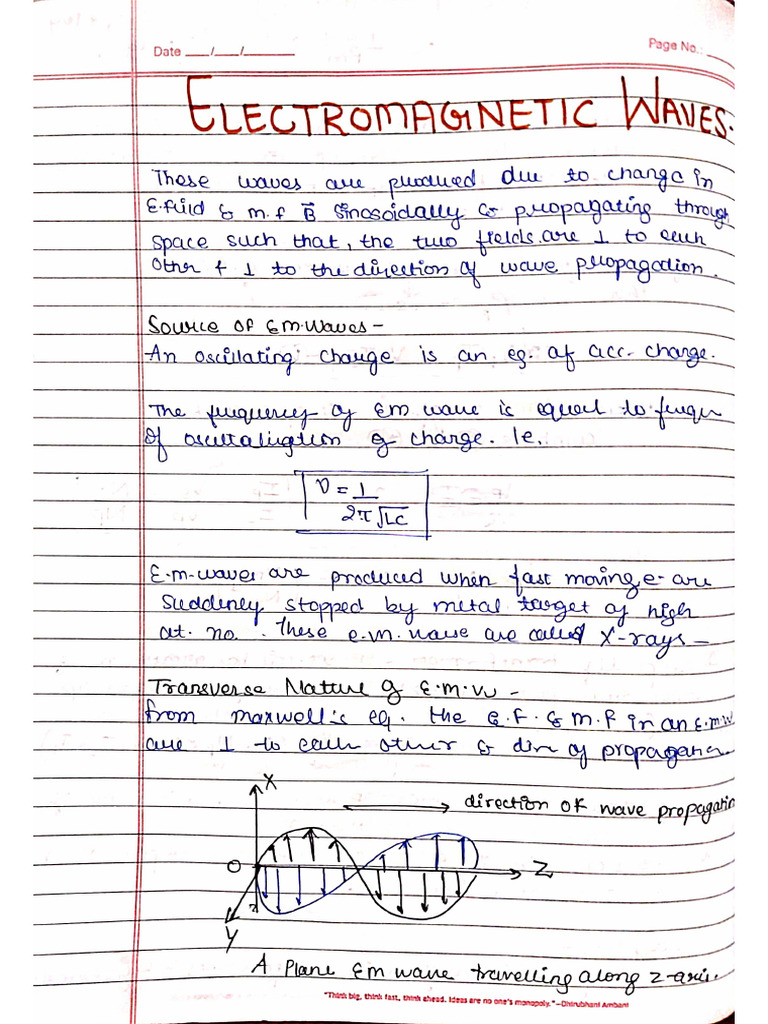 Date ___/___/______
Page No.:
ELECTROMAGNETIC WAVES.
These waves are produced due to change in
E.fuid & m.f B⃗ Sinosoidally & propagating through
space such that, the two fields are ⊥ to each
other & ⊥ to the direction of wave propagation.
Source of Em.waves-
An oscillating charge is an eg. of acc. charge.
The frequency of Em wave is equal to
of of charge. Ie.
ν = 1
2π√LC
E.m-waves are produced when fast moving e- are
Suddenly stopped by metal target of high
at. no. These e.m. wave are called X-rays-
Transverse Nature of E.m.w -
from maxwell's eq. the E.F. & M.F in an E.m.w
are ⊥ to each other & dirn of propagation.
X
direction of wave propagatin
O
Z
Y
A Plane Em wave travelling along z-axis.
"Think big, think fast, think ahead. Ideas are no one's monopoly." –Dhirubhani Ambani